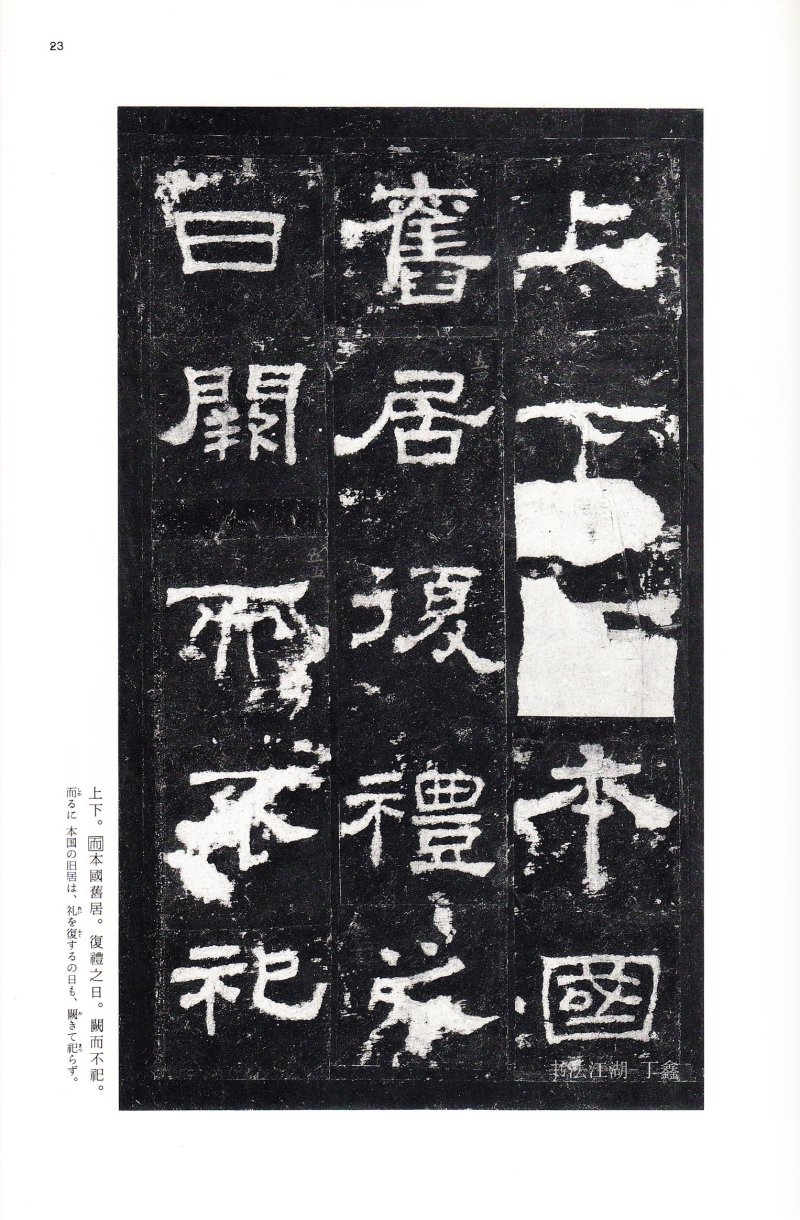 23
上下本國
舊居復禮之
日闕而不祀
上下。而本國舊居。復禮之日。闕而不祀。
而るに本国の旧居は、礼を復するの日も、闕きて祀らず。
书法江湖-丁鑫